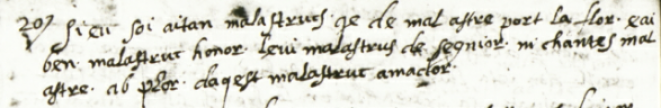 207 Si eu soi aitan malastrucs. qe de mal astre port la flor. e ai
ben malastruc honor. leui malastrus de segnior. ni chantes mal
astre. ab plor. daqest malastruc amador.